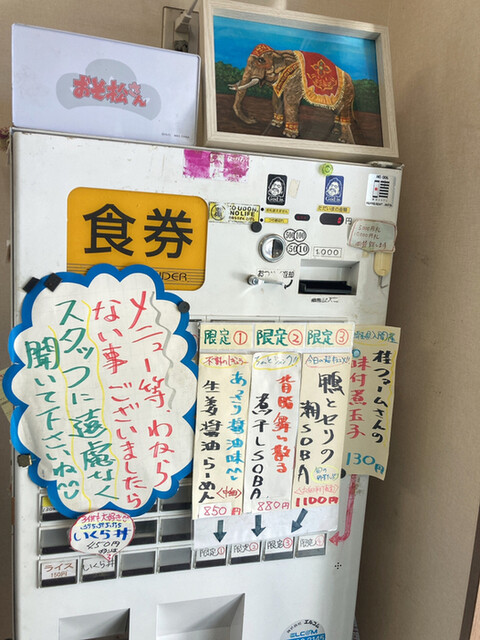 おそ松さん
食券
UDON
NO LIFE
GodLis
GodLis
1000
メニュー等、わから
ない事ございましたら
スタッフに遠慮なく
聞いて下さいね
限定①
あっさり醤油味
生姜醤油らーめん
850円
限定②
背脂舞い散る
煮干しSOBA
880円
限定③
鴨とセリの
潮SOBA
1100円
桂ファームさんの
味付煮玉子
130円
いくら丼
450円
ライス
150円
いくら丼
限定①
限定②
限定③
ELCOM